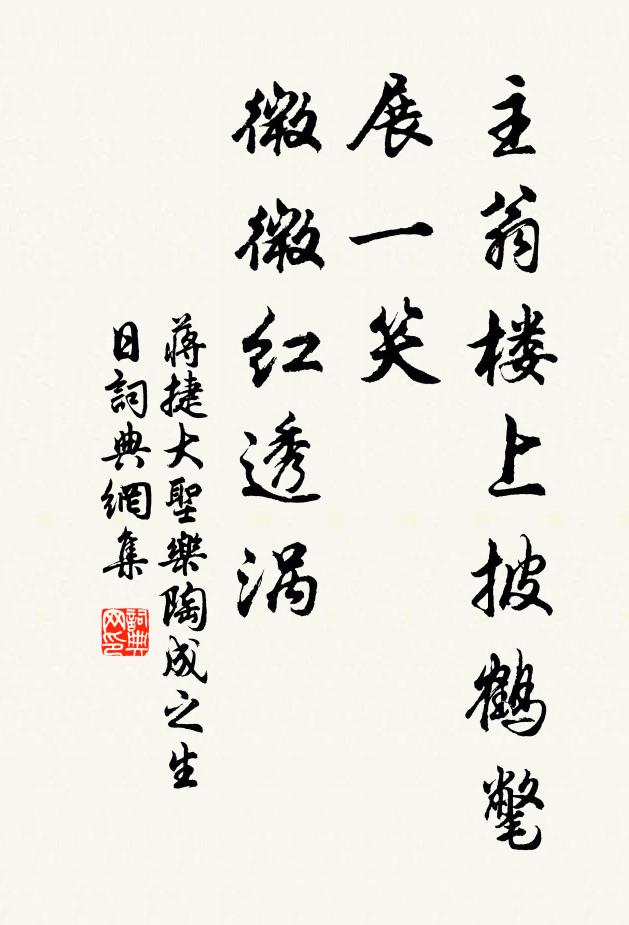 主翁楼上披鹤氅
展一笑
微微红透涡
蒋捷大聖樂陶成之生
日詞典網集
詞典网印